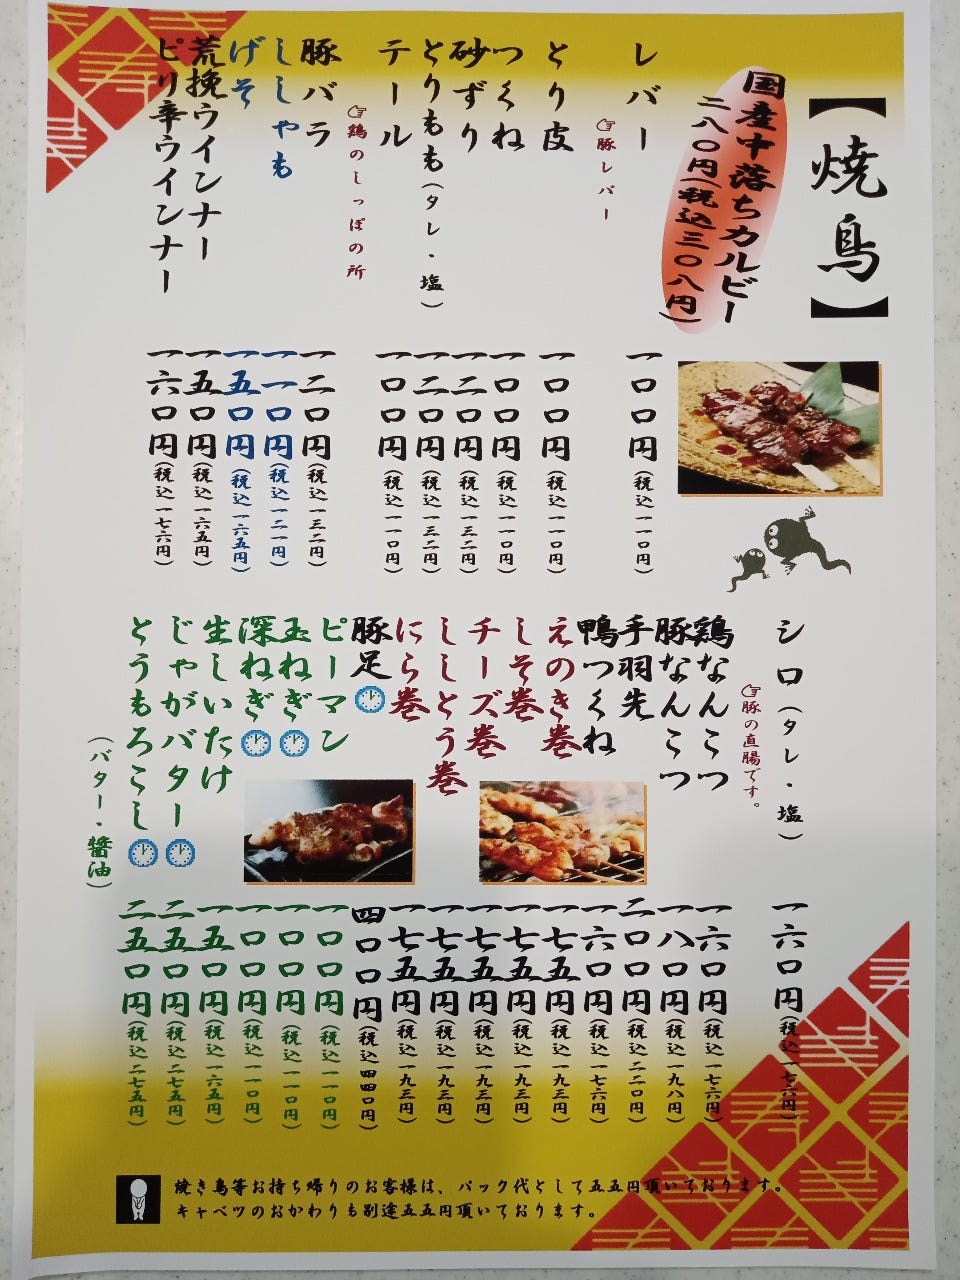 【焼鳥】
国産中落ちカルビー
二八〇円(税込三〇八円)
レバー 一〇〇円(税込一一〇円)
☞豚レバー
とり皮 一〇〇円(税込一一〇円)
つくね 一〇〇円(税込一一〇円)
砂ずり 一二〇円(税込一三二円)
とりもも(タレ・塩) 一二〇円(税込一三二円)
テール 一〇〇円(税込一一〇円)
☞鶏のしっぽの所
豚バラ 一二〇円(税込一三二円)
ししゃも 一一〇円(税込一二一円)
げそ 一五〇円(税込一六五円)
荒挽ウインナー 一五〇円(税込一六五円)
ピリ辛ウインナー 一六〇円(税込一七六円)
シロ(タレ・塩) 一六〇円(税込一七六円)
☞豚の直腸です。
鶏なんこつ 一六〇円(税込一七六円)
豚なんこつ 一八〇円(税込一九八円)
手羽先 二〇〇円(税込二二〇円)
鴨つくね 一六〇円(税込一七六円)
えのき巻 一七五円(税込一九三円)
しそ巻 一七五円(税込一九三円)
チーズ巻 一七五円(税込一九三円)
ししとう巻 一七五円(税込一九三円)
にら巻 一七五円(税込一九三円)
豚足 四〇〇円(税込四四〇円)
ピーマン 一〇〇円(税込一一〇円)
玉ねぎ 一〇〇円(税込一一〇円)
深ねぎ 一〇〇円(税込一一〇円)
生しいたけ 一五〇円(税込一六五円)
じゃがバター 二五〇円(税込二七五円)
とうもろこし 二五〇円(税込二七五円)
(バター・醤油)
焼き鳥等お持ち帰りのお客様は、パック代として五五円頂いております。
キャベツのおかわりも別途五五円頂いております。